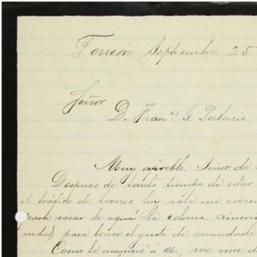 Torreon, Septiembre 25
Señor
D. Fran.co G. Palacio
Muy apreble. Señor de
Despues de tanto tiempo de estar
el tráfico de trenes hoy sale un
para sacar de aquí la colonia
nidos) para tener el gusto de mandarle
Como le anuncié á U., me